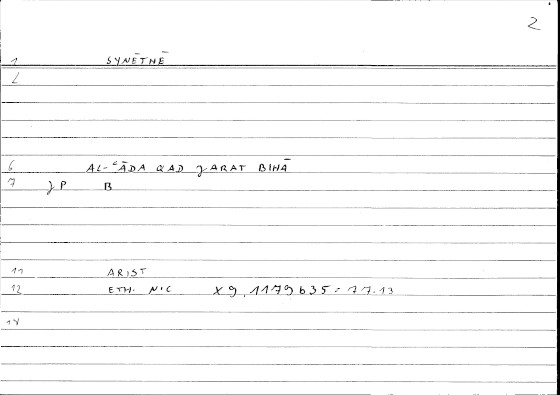 2
1 SYNĒTHĒ
2
6 AL-ʿĀDA QAD ǧARAT BIHĀ
7 ǧP B
11 ARIST
12 ETH. NIC X 9, 1179b35 = 77.13
14